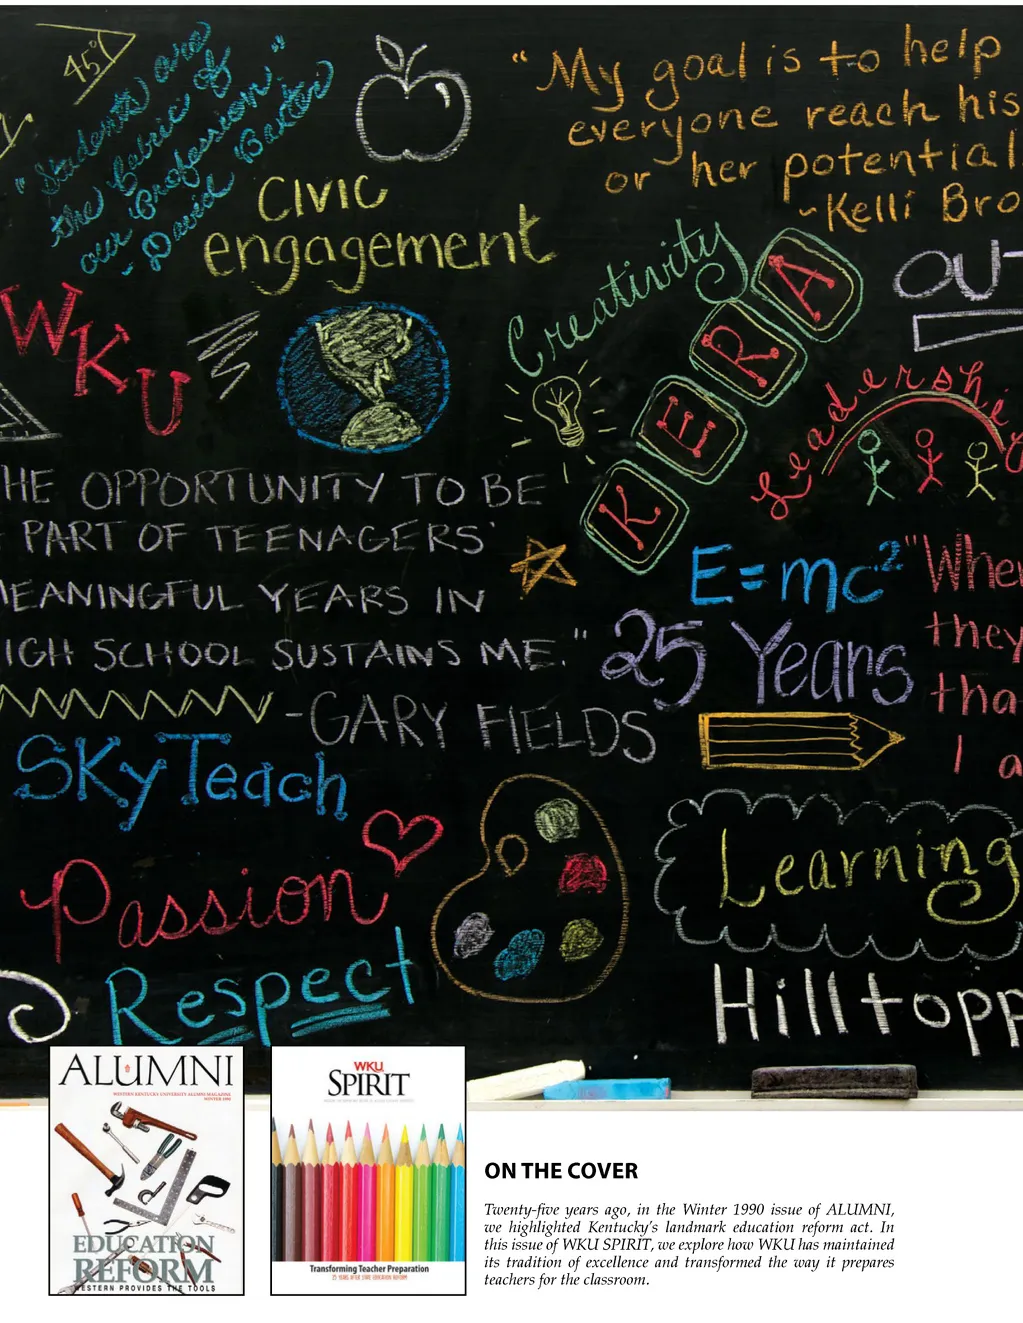 45°
"Students are
the fabric of
our Profession"
- David Baxter
CIVIC
engagement
"My goal is to help
everyone reach his
or her potential
~Kelli Bro
WKU
Creativity
KERA
OUT
Leadershi
HE OPPORTUNITY TO BE
PART OF TEENAGERS'
MEANINGFUL YEARS IN
IGH SCHOOL SUSTAINS ME."
-GARY FIELDS
E=mc²
25 Years
"Whe
they
tha
I a
SKyTeach
Passion
Respect
Learning
Hilltopp
ALUMNI
WESTERN KENTUCKY UNIVERSITY ALUMNI MAGAZINE
WINTER 1990
EDUCATION
REFORM
WESTERN PROVIDES THE TOOLS
WKU
SPIRIT
Transforming Teacher Preparation
25 YEARS AFTER STATE EDUCATION REFORM
ON THE COVER
Twenty-five years ago, in the Winter 1990 issue of ALUMNI,
we highlighted Kentucky's landmark education reform act. In
this issue of WKU SPIRIT, we explore how WKU has maintained
its tradition of excellence and transformed the way it prepares
teachers for the classroom.